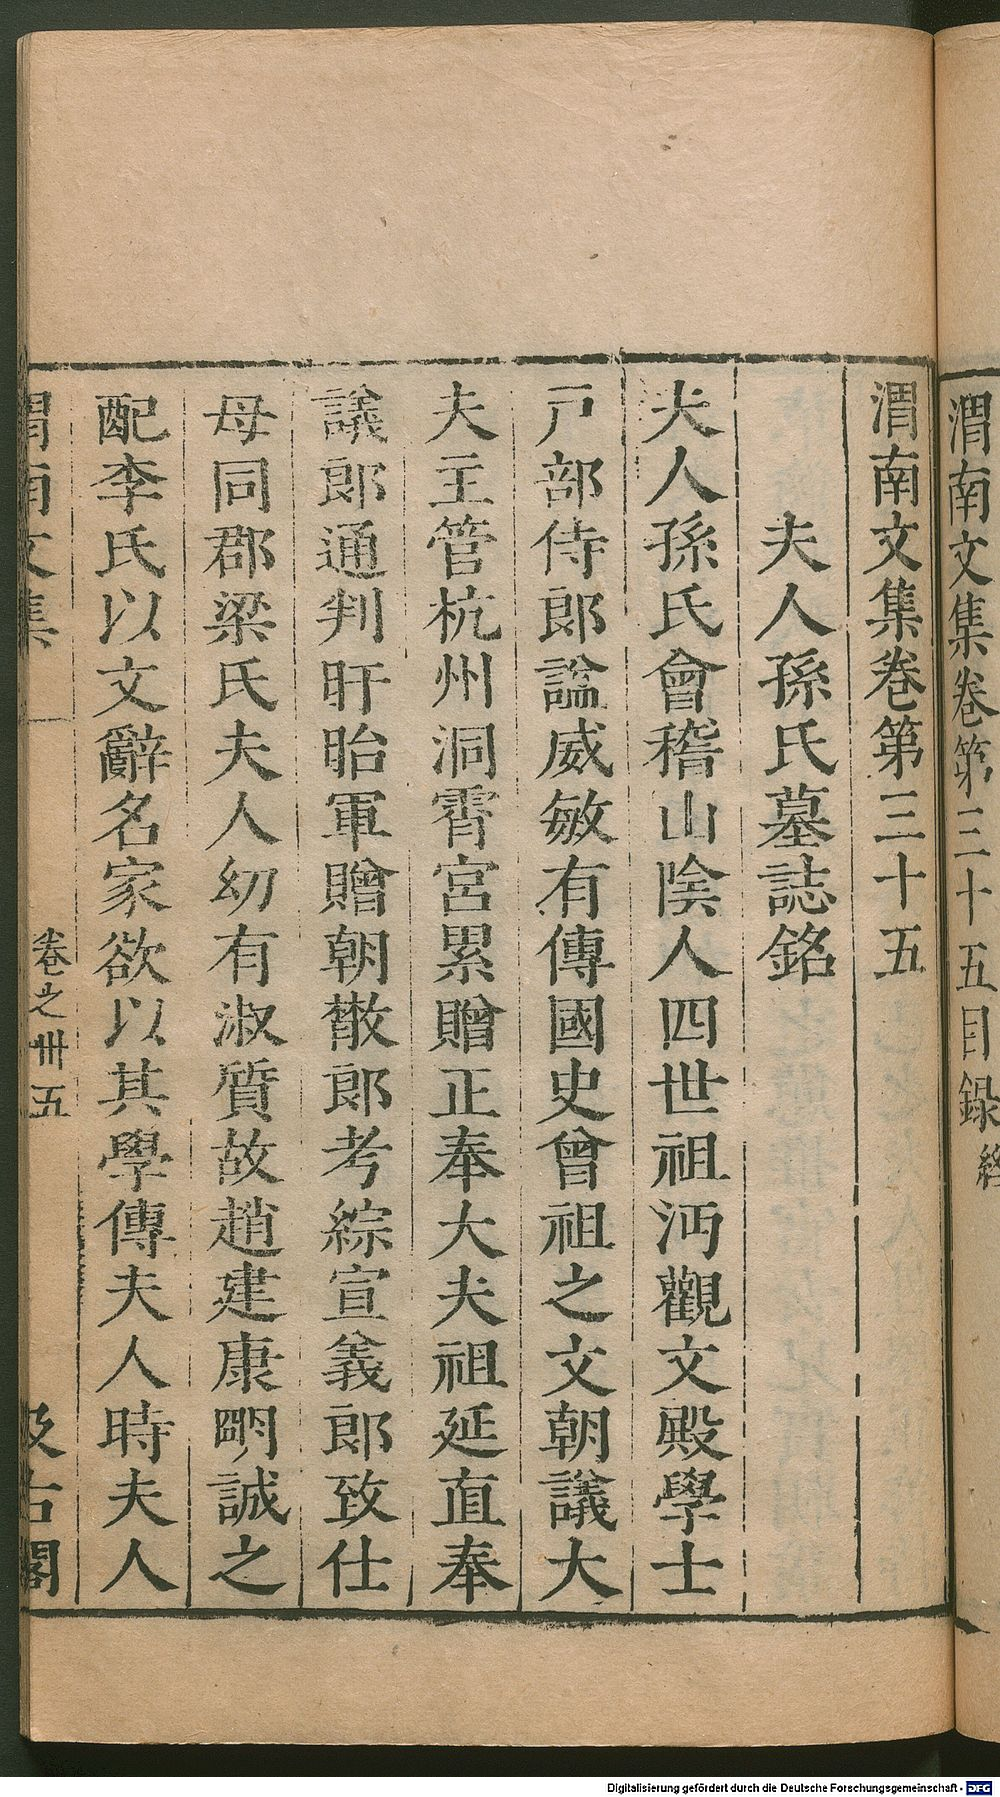 渭南文集卷第三十五目錄終
渭南文集卷第三十五
夫人孫氏墓誌銘
夫人孫氏會稽山陰人四世祖沔觀文殿學士
戸部侍郎謚威敏有傳國史曾祖之文朝議大
夫主管杭州洞霄宮累贈正奉大夫祖延直奉
議郎通判盱眙軍贈朝散郎考綜宣義郎致仕
母同郡梁氏夫人幼有淑質故趙建康明誠之
配李氏以文辭名家欲以其學傳夫人時夫人
渭南文集
卷之卅五
汲古閣
Digitalisierung gefördert durch die Deutsche Forschungsgemeinschaft - DFG